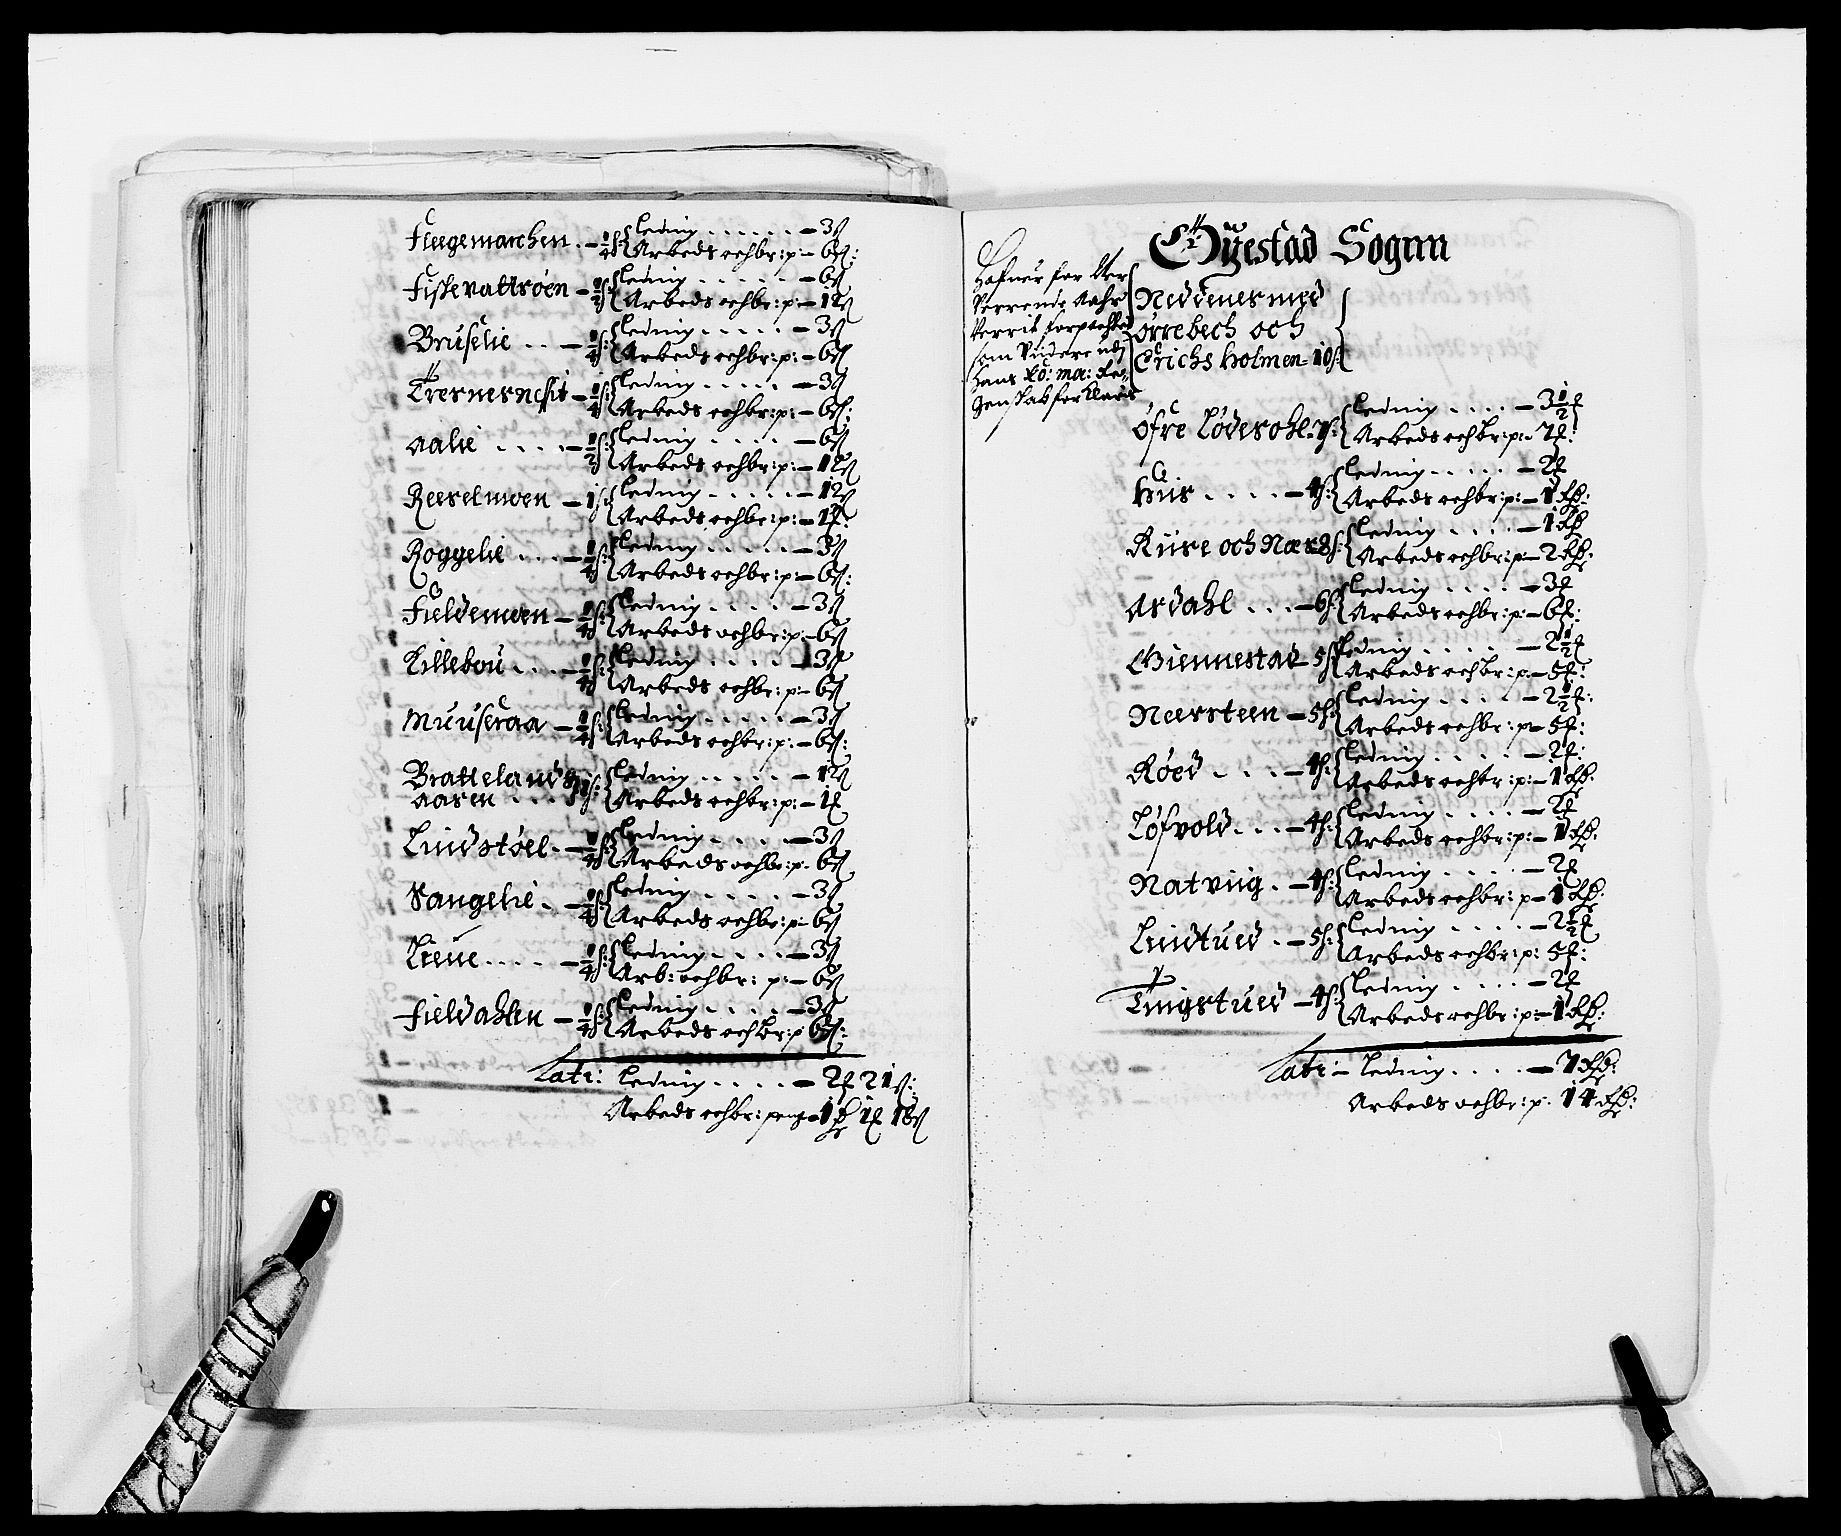 Fleegemarchen . – 1/4 ß: { Leding . . . . . . – 3 ß
Arbeds och br: p: – 6 ß:
Fiskevattnöen – 1/2 ß: { Leding . . . . . – 6 ß
Arbeds och br: p: – 12 ß
Bruselie . . – 1/4 ß: { Leding . . . . . – 3 ß
Arbeds och br: p: – 6 ß
– 1/4 ß: { Leding . . . . . – 3 ß
Arbeds och br: p: – 6 ß:
Aalie . . . . – 1/2 ß: { Leding . . . . – 6 ß
Arbeds och br: p: – 12 ß
Reeselmoen – 1 ß: { Leding . . . . . – 12 ß
Arbeds och br: p: – 1
Roggelie . . . – 1/4 ß: { Leding . . . . . – 3 ß
Arbeds och br: p: – 6 ß:
Fieldemoen – 1/4 ß: { Leding . . . . – 3 ß
Arbeds och br: p: – 6 ß
Lillebou . . . – 1/4 ß: { Leding . . . . – 3 ß
Arbeds och br: p: – 6 ß
Muuseraa – 1/4 ß: { Leding . . . . . – 3 ß
Arbeds och br: p: – 6 ß:
Brattelands
aasen . . . } 1 ß: { Leding . . . . . – 12 ß
Arbeds och br: p: – 1
Lindstöel . – 1/4 ß: { Leding . . . . . – 3 ß
Arbeds och br: p. 6 ß
Sangelie . – 1/4 ß: { Leding . . . . . – 3 ß
Arbeds och br: p: – 6 ß
Lieue . . . . – 1/4 ß: { Leding . . . . – 3 ß
Arb: och br: p: – 6 ß
Fieldahlen – 1/4 ß: { Leding . . . . . – 3 ß
Arbeds och br: p 6 ß:
Latr: Leding . . . . – 2 21 ß:
Arbeds och br: peng – 1 1 18 ß
Öyestad Sognn
Hafuer for
aahr
forpachtet
som Videre udj
Hans Ko: Ma:
Neddenes med
örrebech och
Erichs holmen – 10 ß:
Öfre Löderohl. 7 ß: { Leding . . . . – 3 1/2
Arbeds och br: p: – 7
Huus . . . . – 4 ß: { Leding . . . . . – 2
Arbeds och br: p: – 1 Rd:
Ruse och Næs 8 ß: { Leding . . . . – 1 Rd
Arbeds och br: p: – 2 Rd:
Asdahl . . . – 6 ß: { Leding . . . . – 3
Arbeds och br: p: – 6
Giennestad – 5 ß: { Leding . . . . – 2 1/2
Arbeds och br: p: – 5
Neersteen – 5 ß: { Leding . . . . – 2 1/2
Arbeds och br: p – 5
Röed . . . – 4 ß: { Leding . . . . – 2
Arbeds och br: p: – 1 Rd:
Löfvold . . . – 4 ß: { Leding . . . . – 2
Arbeds och br: p: – 1 Rd:
Natvuig . – 4 ß: { Leding . . . . – 2
Arbeds och br: p – 1 Rd:
Lindtued . – 5 ß: { Leding . . . . – 2 1/2
Arbeds och br: p: 5
Tingstued – 4 ß: { Leding . . . . – 2
Arbeds och br: p: – 1 Rd:
Latr – Leding . . . . – 7 Rd:
Arbeds och br: p. 14 Rd: